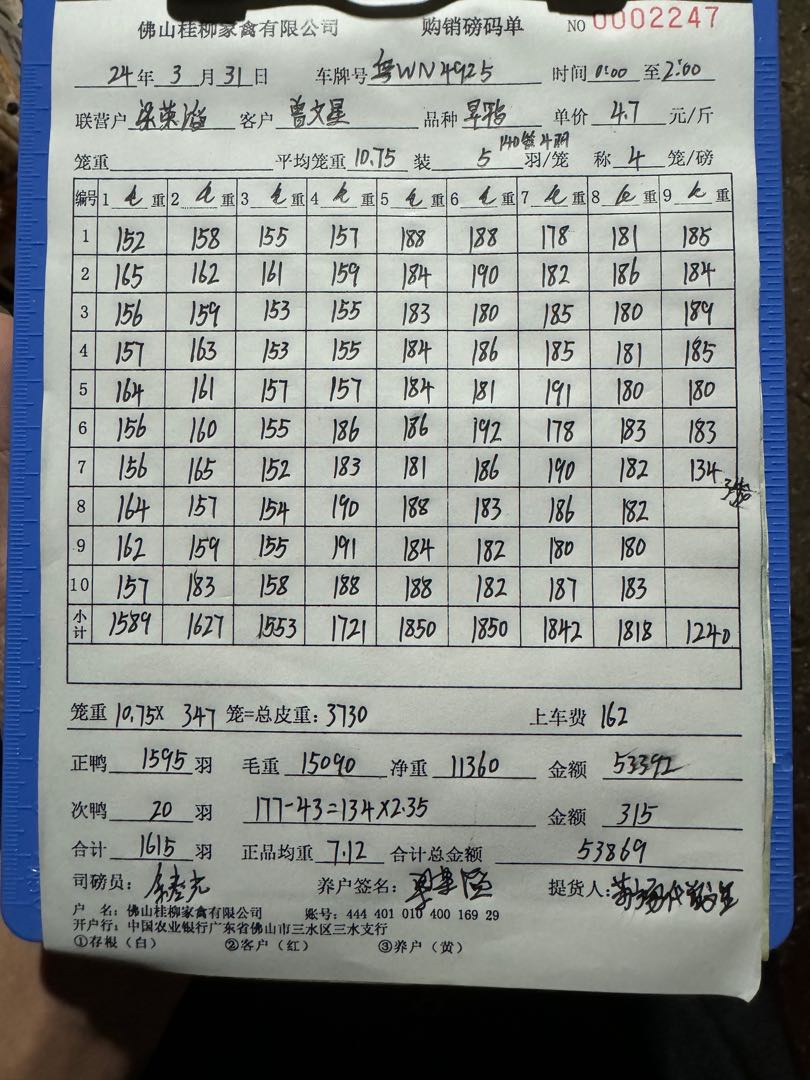 佛山桂柳家禽有限公司 购销磅码单 NO 0002247
24年 3月 31日 车牌号 粤WN4925 时间 0:00 至 2:00
联营户 梁荣溢 客户 曾文星 品种 旱鸭 单价 4.7 元/斤
140笼4羽
笼重 平均笼重 10.75 装 5 羽/笼 称 4 笼/磅
编号 1 毛 重 2 毛 重 3 毛 重 4 毛 重 5 毛 重 6 毛 重 7 毛 重 8 毛 重 9 毛 重
1 152 158 155 157 188 188 178 181 185
2 165 162 161 159 184 190 182 186 184
3 156 159 153 155 183 180 185 180 189
4 157 163 153 155 184 186 185 181 185
5 164 161 157 157 184 181 191 180 180
6 156 160 155 186 186 192 178 183 183
7 156 165 152 183 181 186 190 182 134
3笼
8 164 157 154 190 188 183 186 182
9 162 159 155 191 184 182 180 180
10 157 183 158 188 188 182 187 183
小计 1589 1627 1553 1721 1850 1850 1842 1818 1240
笼重 10.75X 347 笼=总皮重: 3730 上车费 162
正鸭 1595 羽 毛重 15090 净重 11360 金额 53392
次鸭 20 羽 177-43=134X2.35 金额 315
合计 1615 羽 正品均重 7.12 合计总金额 53869
司磅员: 养户签名: 提货人:
户 名: 佛山桂柳家禽有限公司 账号: 444 401 010 400 169 29
开户行: 中国农业银行广东省佛山市三水区三水支行
①存根（白） ②客户（红） ③养户（黄）